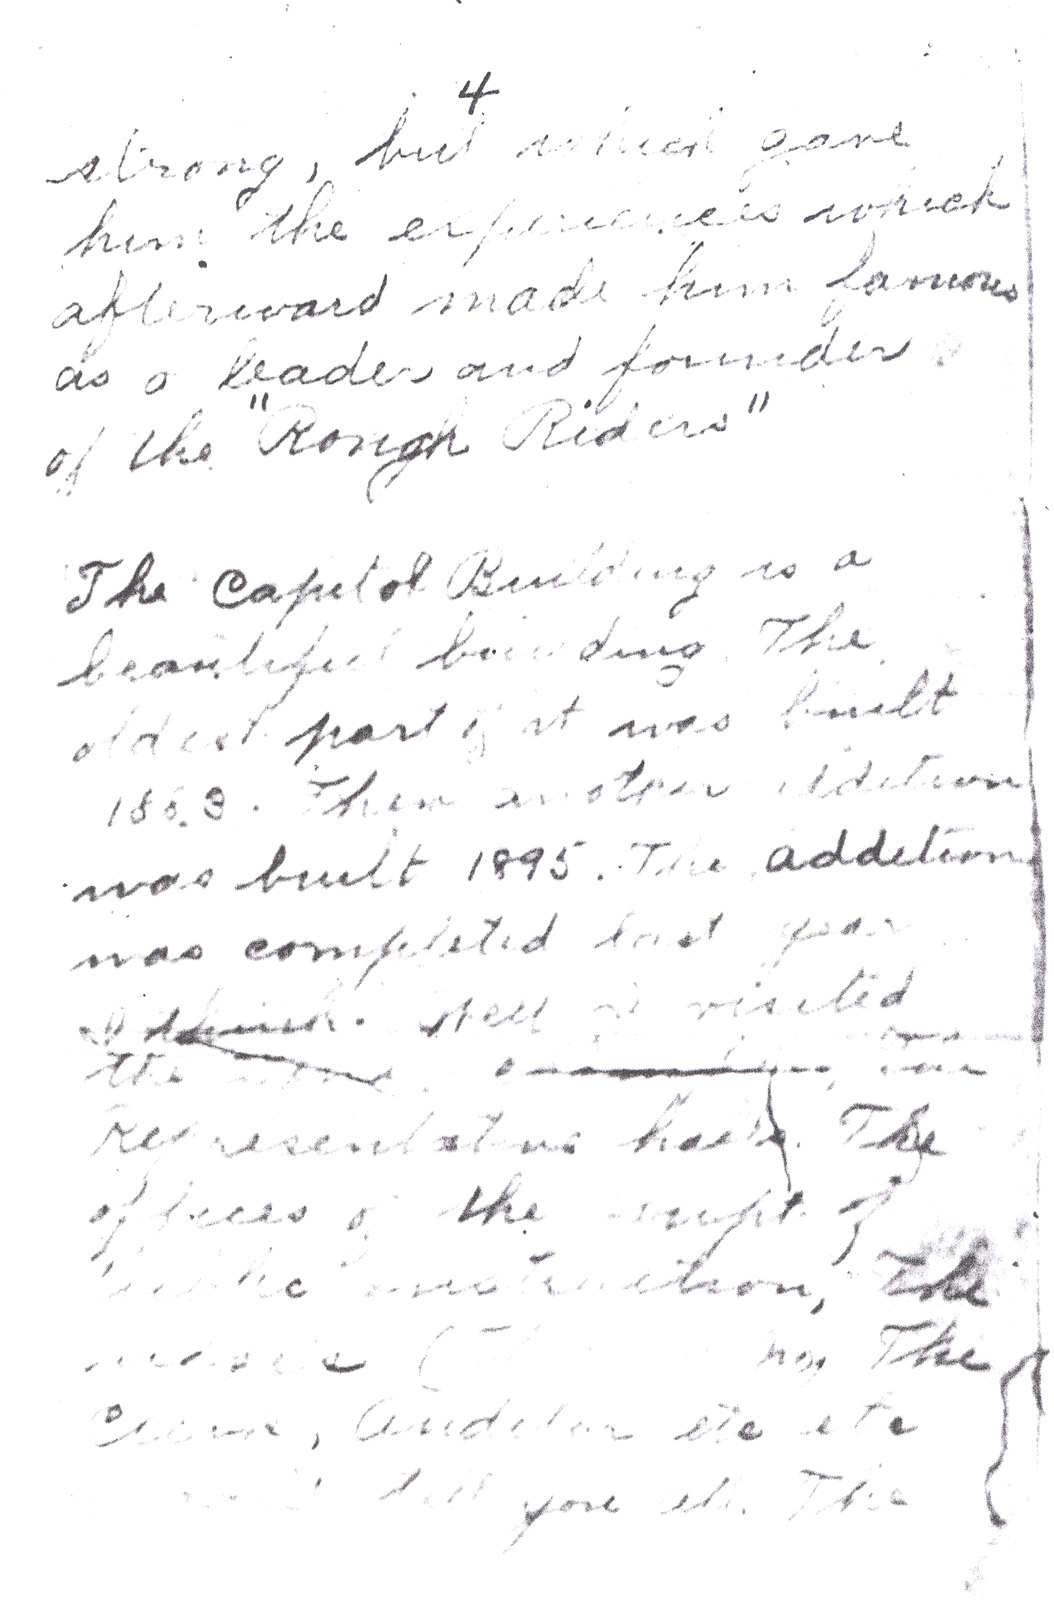 4
strong, but which gave
him the experiences which
afterward made him famous
as a leader and founder
of the "Rough Riders"
The Capitol Building is a
beautiful building. The
oldest part of it was built
1883. Then another addition
was built 1895. The addition
was completed last year
I think. Well I visited
the
Representatives halls. The
offices of the supt. of
Public instruction, The
The
Audutar etc etc
tell you all. The